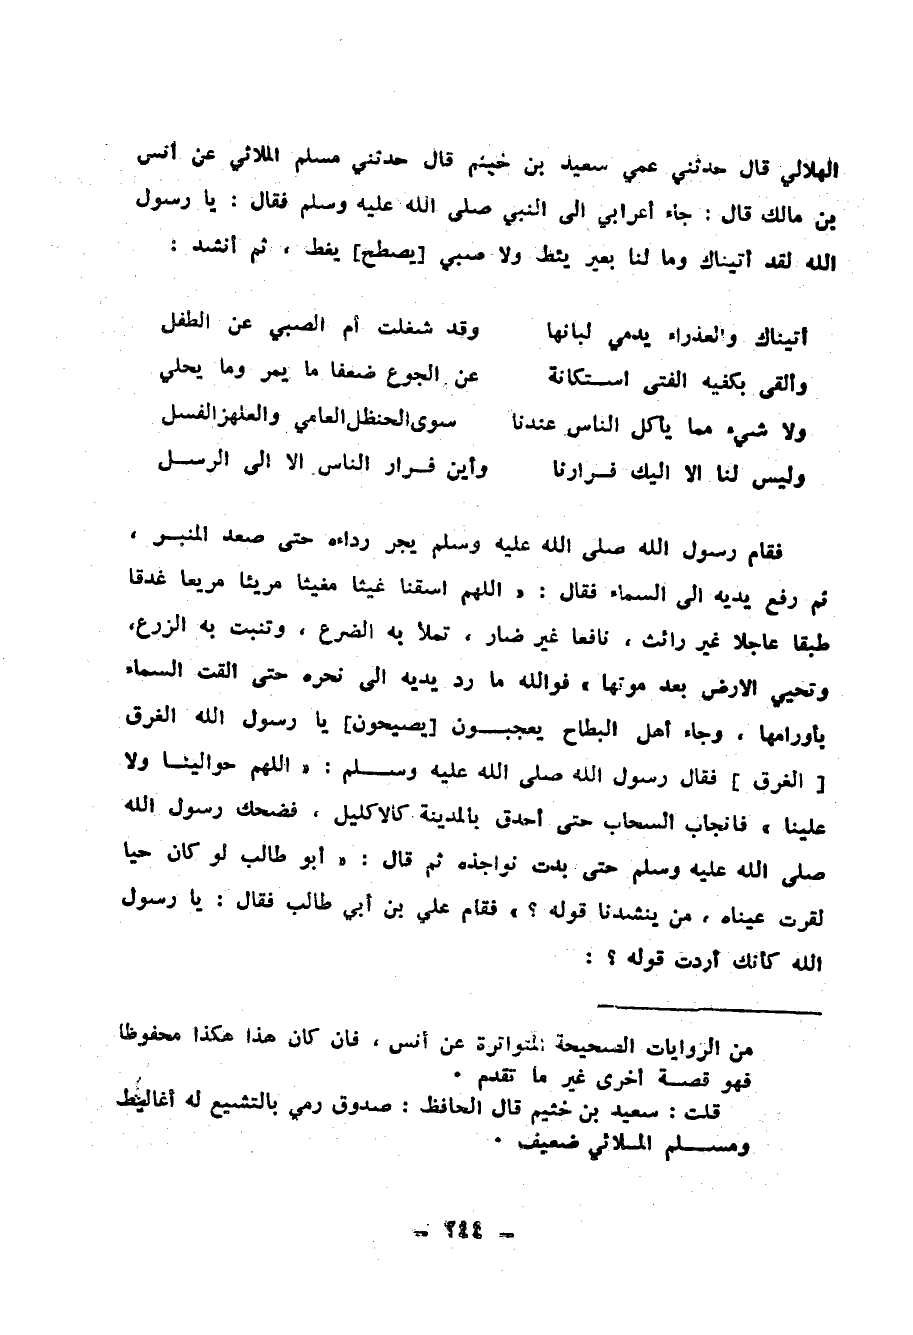 الهلالي قال حدثني عمي سعيد بن خيثم قال حدثني مسلم الملائي عن أنس
بن مالك قال : جاء أعرابي الى النبي صلى الله عليه وسلم فقال : يا رسول
الله لقد أتيناك وما لنا بعير يئط ولا صبي [يصطح] يغط ، ثم أنشد :
أتيناك والعذراء يدمي لبانها وقد شغلت أم الصبي عن الطفل
وألقى بكفيه الفتى استكانة عن الجوع ضعفا ما يمر وما يحلي
ولا شيء مما يأكل الناس عندنا سوى الحنظل العامي والعلهز الفسل
وليس لنا الا اليك فرارنا وأين فرار الناس الا الى الرسل
فقام رسول الله صلى الله عليه وسلم يجر رداءه حتى صعد المنبر ،
ثم رفع يديه الى السماء فقال : « اللهم اسقنا غيثا مغيثا مريئا مريعا غدقا
طبقا عاجلا غير رائث ، نافعا غير ضار ، تملأ به الضرع ، وتنبت به الزرع،
وتحيي الارض بعد موتها » فوالله ما رد يديه الى نحره حتى القت السماء
بأورامها ، وجاء أهل البطاح يعجبون [يصيحون] يا رسول الله الغرق
[ الغرق ] فقال رسول الله صلى الله عليه وسلم : « اللهم حوالينا ولا
علينا » فانجاب السحاب حتى أحدق بالمدينة كالاكليل ، فضحك رسول الله
صلى الله عليه وسلم حتى بدت نواجذه ثم قال : « أبو طالب لو كان حيا
لقرت عيناه ، من ينشدنا قوله ؟ » فقام علي بن أبي طالب فقال : يا رسول
الله كأنك أردت قوله ؟ :
من الروايات الصحيحة المتواترة عن أنس ، فان كان هذا هكذا محفوظا
فهو قصة أخرى غير ما تقدم .
قلت : سعيد بن خثيم قال الحافظ : صدوق رمي بالتشيع له أغاليط
ومسلم الملائي ضعيف .
– ٢٤٤ –